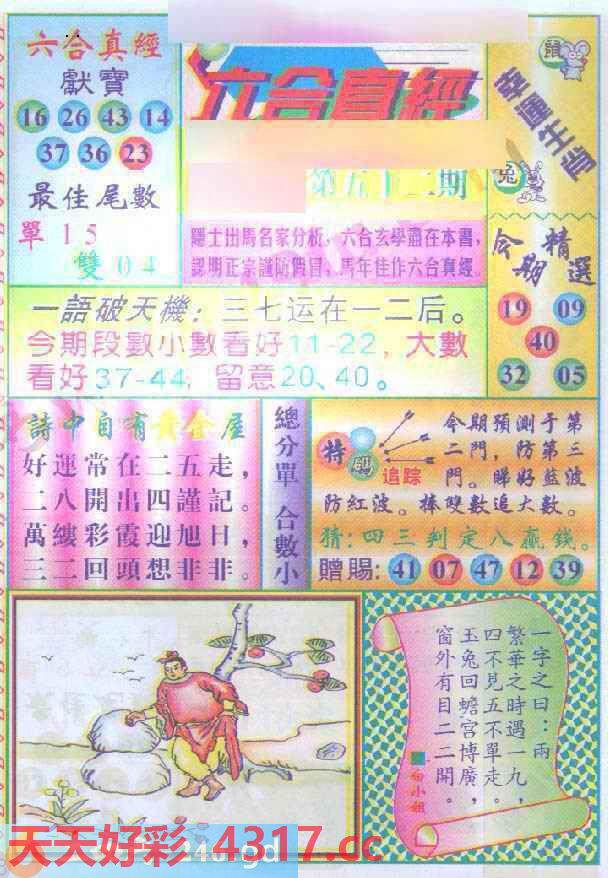 六合真經
獻寶
16 26 43 14
37 36 23
最佳尾數
單 15
雙 04
六合真經
第五十二期
隱士出馬名家分析，六合玄學盡在本書，
認明正宗謹防假冒，馬年佳作六合真經。
鼠
幸運生肖
兔
今期精選
19 09
40
32 05
一語破天機：三七运在一二后。
今期段數小數看好11-22，大數
看好37-44，留意20、40。
詩中自有黃金屋
好運常在二五走，
二八開出四謹記。
萬縷彩霞迎旭日，
三二回頭想非非。
總分單 合數小
特碼
追踪
今期預測于第
二門，防第三
門。睇好藍波
防紅波。捧雙數追大數。
猜：四三判定八贏錢。
贈賜：41 07 47 12 39
一字之曰：兩
繁華之時遇一九，
四不見五不單走。
玉兔回蟾宮博廣，
窗外有目二二開。
小姐
天天好彩 4317.cc
246.gd